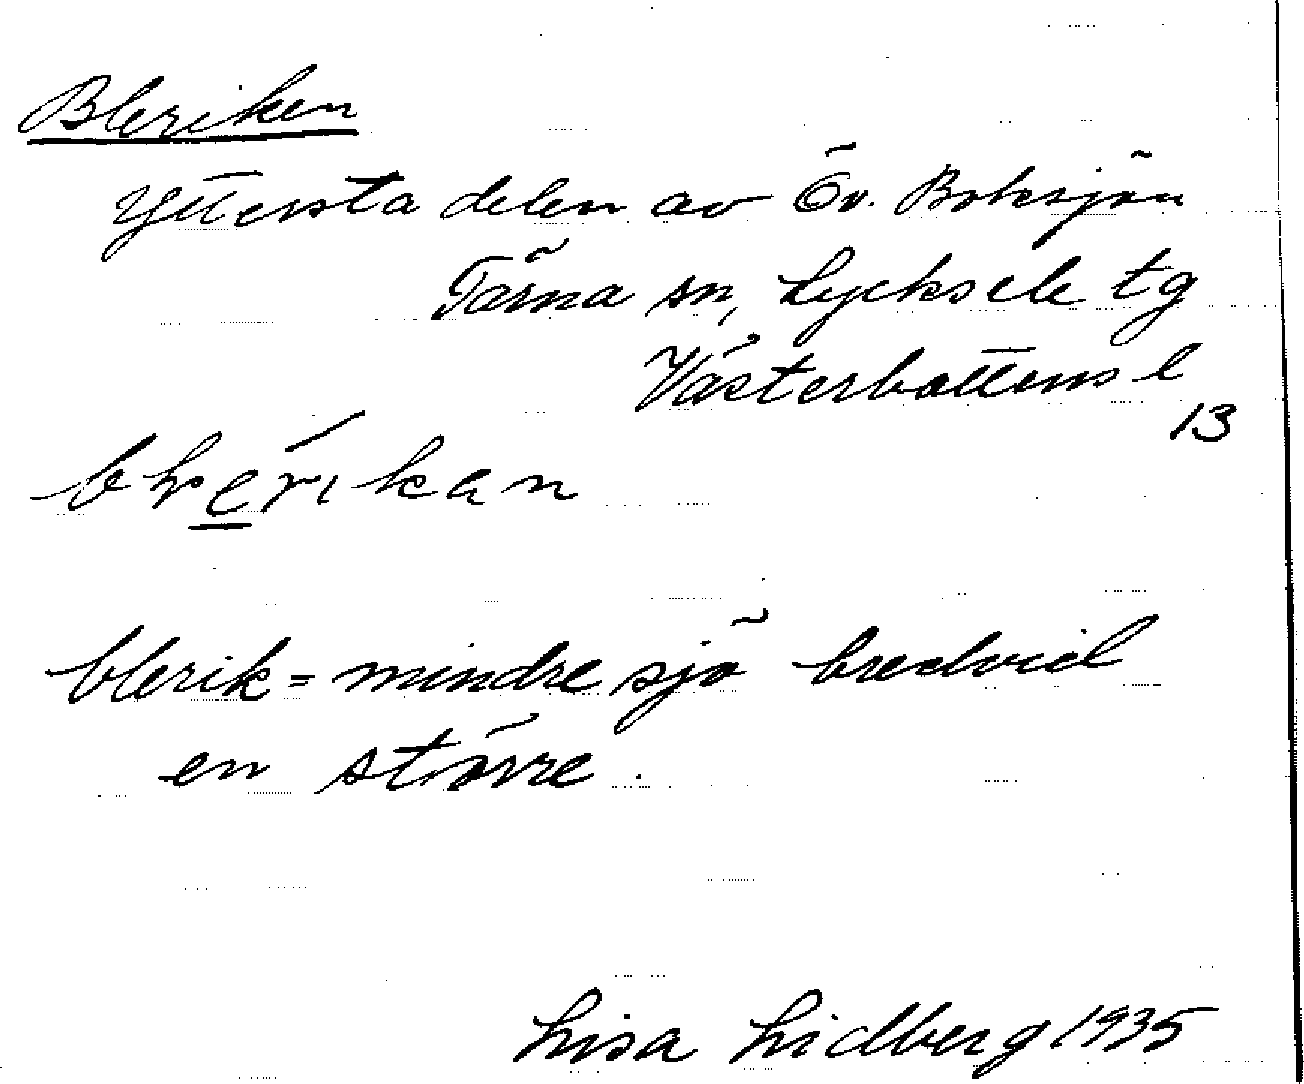 Bleriken
Yttersta delen av Öv. Boksjön
Tärna sn, Lycksele tg
Västerbottens l
13
blerik = mindre sjö bredvid
en större.
Lisa Lidberg 1935